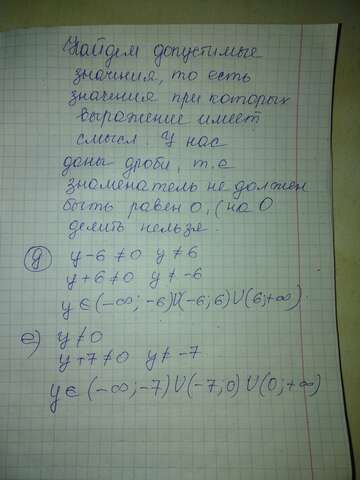 Найдем допустимые
значния, то есть
значения при которых
выражение имеет
смысл. У нас
даны дроби, т.е
знаменатель не должен
быть равен 0, (на 0
делить нельзя.
д) y-6≠0 y≠6
y+6≠0 y≠-6
y∈(-∞;-6)U(-6;6)U(6;+∞)
е) y≠0
y+7≠0 y≠-7
y∈(-∞;-7)U(-7;0)U(0;+∞)